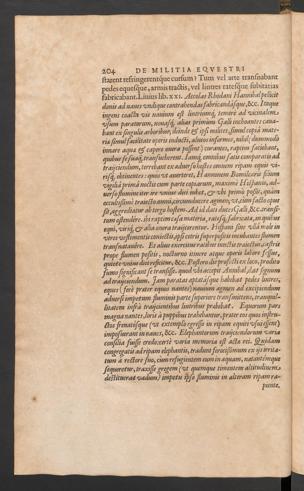 204 DE MILITIA EQVESTRI
starent restringerentque cursum: Tum vel arte transnabant
pedes equesque, armis tractis, vel lintres ratesque subitarias
fabricabant. Liuius lib. xxi. Accolas Rhodani Hannibal pellicit
donis ad naues vndique contrahendas fabricandasque, &c. Itaque
ingens coacta vis nauium est lintriumq́; temerè ad vicinalem
vsum paratarum, nouasq́; alias primùm Galli inchoantes caua-
bant ex singulis arboribus, deinde & ipsi milites, simul copiâ mate-
riæ simul facilitate operis inducti, alueos informes, nihil, dummodo
innare aquæ & capere onera possent, curantes, raptim faciebant,
quibus se suaq́; transueherent. Iamq́; omnibus satis comparatis ad
traiiciendum, terrebant ex aduerso hostes omnem ripam equis vi-
risq́; obtinentes: quos vt auerteret, Hannonem Bomilcaris filium
vigiliâ primâ noctis cum parte copiarum, maximè Hispanis, ad-
uerso flumine iter ire vnius diei iubet, & vbi primùm possit, quàm
occultissimè traiecto amni, circumducere agmen, vt, cùm facto opus
sit, adgrediatur ab tergo hostem. Ad id dati duces Galli, &c. transi-
tum ostendere. ibi raptim cæsa materia, ratesq́; fabricatæ, in quibus
equi, virìq́; & alia onera traiicerentur. Hispani sine vlla mole in
vtres vestimentis coniectis, ipsi cetris superpositis incubantes flumen
transnatauere. Et alius exercitus ratibus iunctis traiectus, castris
prope flumen positis, nocturno itinere atque operis labore fessus,
quiete vnius diei reficitur, &c. Postero die profecti ex loco, prodito
fumo significant se transisse. quod vbi accepit Annibal, dat signum
ad traiiciendum. Iam paratas aptatasque habebat pedes lintres,
eques (ferè propter equos nantes) nauium agmen ad excipiendum
aduersi impetum fluminis parte superiore transmittens, tranquil-
litatem infrà traiicientibus lintribus præbebat. Equorum pars
magna nantes, loris à puppibus trahebantur, præter eos quos instru-
ctos frenatosque (vt extemplo egresso in ripam equiti vsui essent)
imposuerant in naues, &c. Elephantorum traiiciendorum varia
consilia fuisse credo: certè varia memoria est actæ rei. Quidam
congregatis ad ripam elephantis, tradunt ferocissimum ex iis irrita-
tum à rectore suo, cùm refugientem eum in aquam, nantem inse-
queretur, traxisse gregem, vt quemque timentem altitudinem
destitueret vadum, impetu ipso fluminis in alteram ripam ra-
piente.